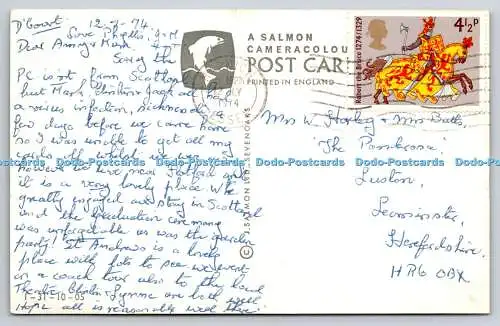 D'Court 12-7-74
Love Phyllis
Dear Amy & Mark
Sorry the
PC isn't from Scotland
but Mark, Christine & Jack all had
a virus infection, sickness, a
few days before we came home
so I was unable to get all my
cards off whilst we were
However we have near
it is a very lovely place. We
greatly enjoyed our stay in Scotland
and the Graduation ceremony
was unforgettable as was the garden
party! St Andrews is a lovely
place with lots to see we went
on a coach tour also to the
Theatre. are both well
Hope all is reasonably well there
1-31-10-05
A SALMON
CAMERACOLOUR
POST CARD
PRINTED IN ENGLAND
© J. SALMON LTD., SEVENOAKS
Robert the Bruce 1274/1329
4½p
Mrs W & Mrs Butts,
The
Luston,
Leominster,
Herefordshire.
HR6 0BX
Dodo-Postcards Dodo-Postcards Dodo-Postcards Dodo-Postcards Dodo-Postcards